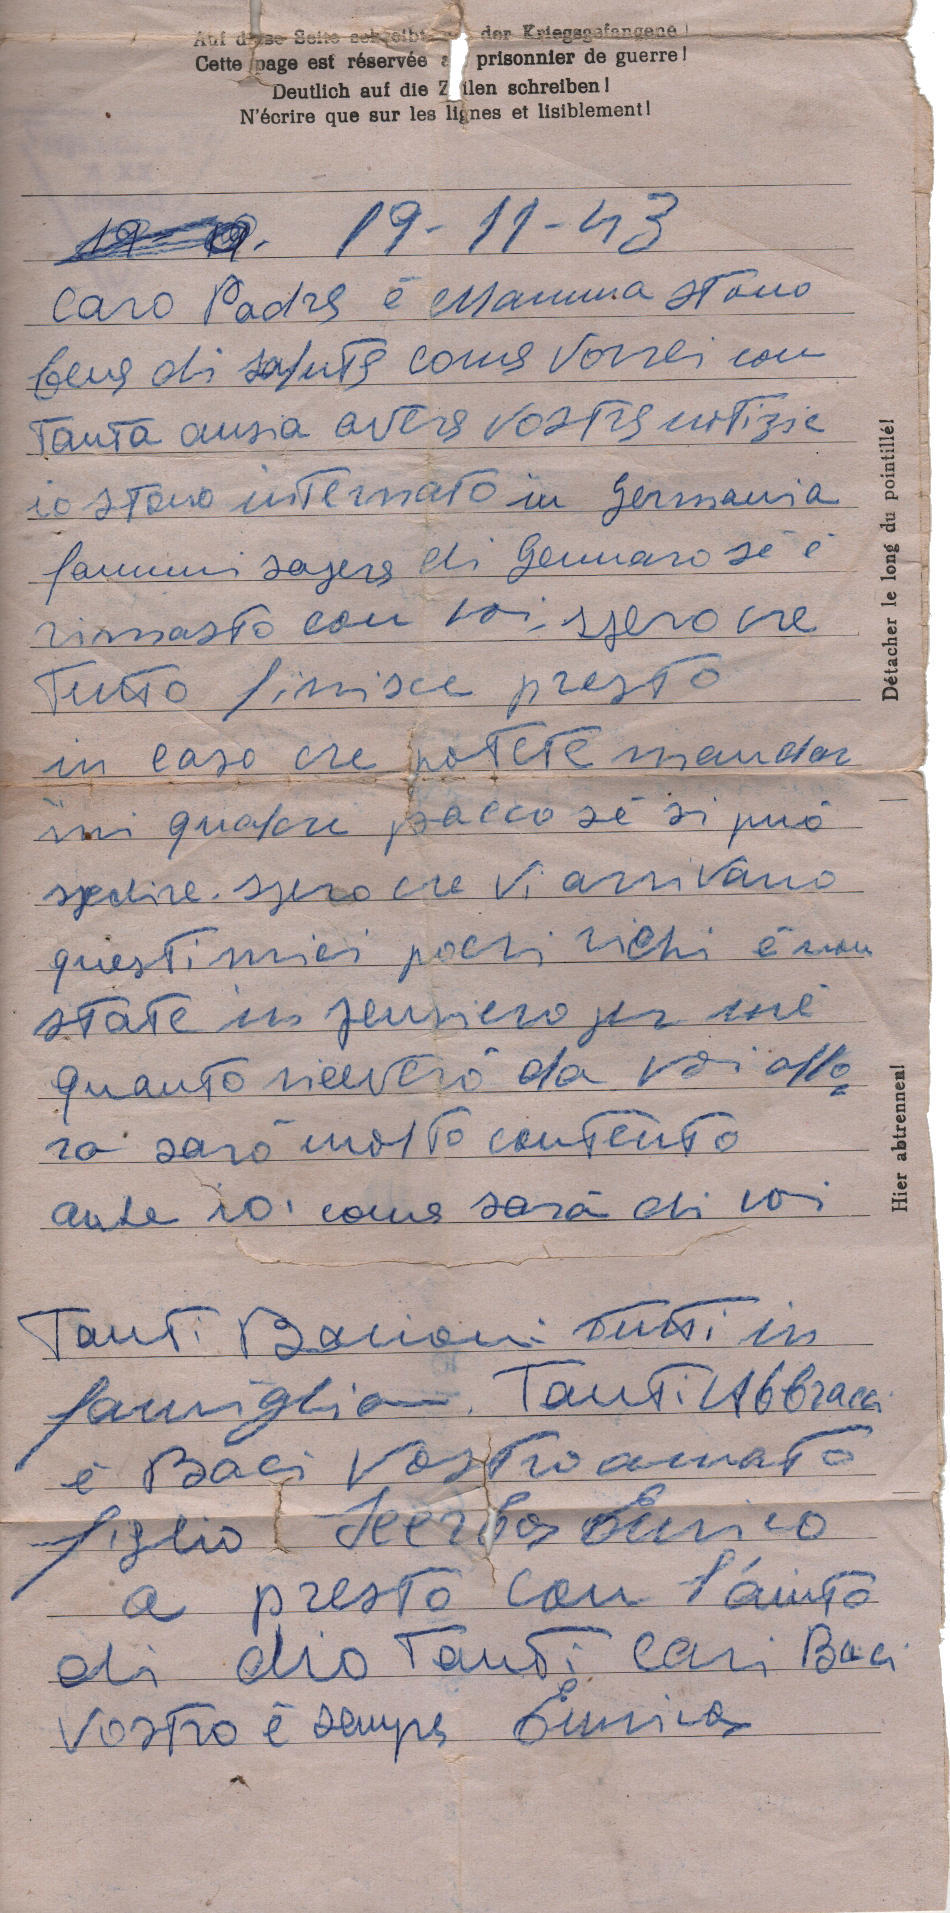 Auf diese Seite schreibt der Kriegsgefangene!
Cette page est réservée au prisonnier de guerre!
Deutlich auf die Zeilen schreiben!
N'écrire que sur les lignes et lisiblement!
19-11-43
Caro Padre è Mamma stono
bene di salute come vorrei con
tanta ansia avere vostre notizie
io stono internato in Germania
fammi sapere di Gennaro sè è
rimasto con voi. spero che
tutto finisce presto
in caso che potete mandar
mi qualche pacco sè si può
spedire. spero che vi arrivano
questi miei pochi righi è non
state in pensiero per mè
quanto riceverò da voi allo
ra sarò molto contento
anche io. come sarà di voi
Tanti Bacioni tutti in
famiglia. Tanti Abbracci
è Baci Vostro amato
figlio Enrico
a presto con l'aiuto
di dio Tanti Cari Baci
Vostro è sempre Enrico
Détacher le long du pointillé!
Hier abtrennen!